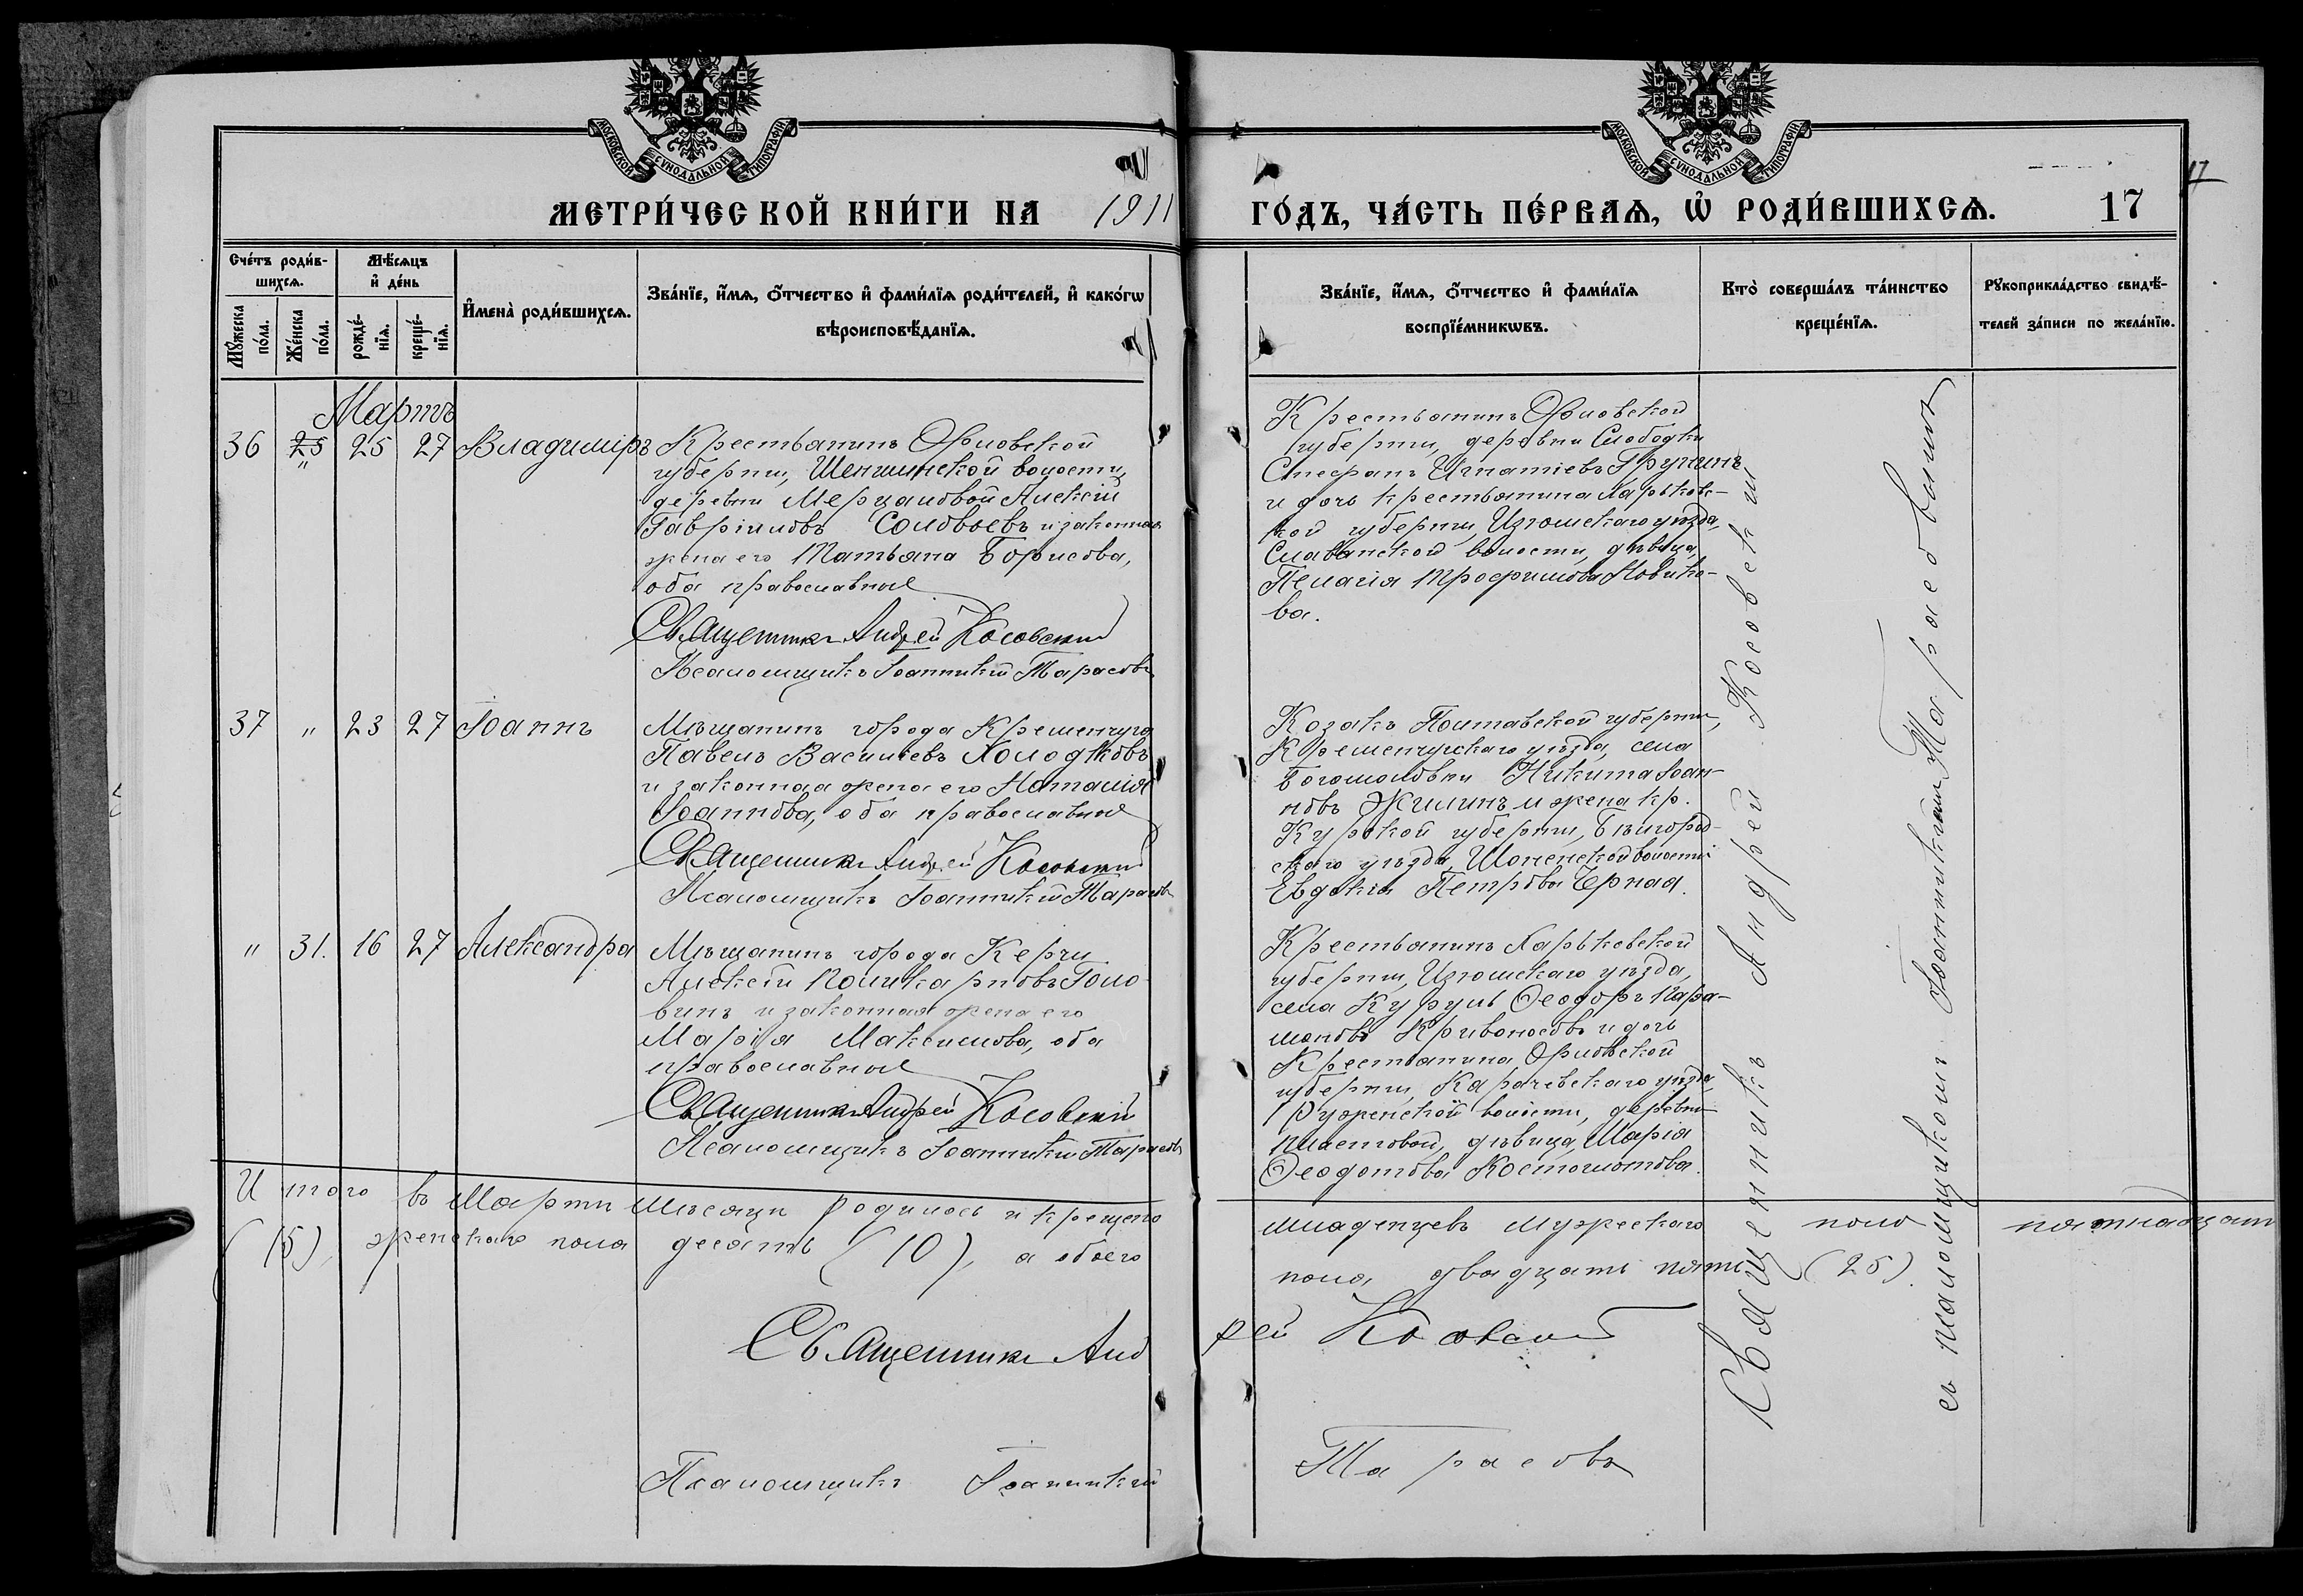 МОСКОВСКОЙ СѴНОДАЛЬНОЙ ТИПОГРАФІИ
МОСКОВСКОЙ СѴНОДАЛЬНОЙ ТИПОГРАФІИ
МЕТРИ́ЧЕСКОЙ КНИ́ГИ НА 1911
ГО́ДЪ, ЧА́СТЬ ПЕ́РВАѦ, Ѡ҆ РОДИ́ВШИХСѦ.
17
17
Сче́тъ роди́в-
шихсѧ.
Мꙋ́жеска по́ла.
Же́нска по́ла.
Мѣ́сѧцъ
и҆ де́нь
рожде́-
нїѧ.
креще́-
нїѧ.
И҆мена̀ роди́вшихсѧ.
Зва́нїе, и҆́мѧ, ѻ҆́тчество и҆ фами́лїѧ роди́телей, и҆ како́гѡ
вѣроисповѣ́данїѧ.
Зва́нїе, и҆́мѧ, ѻ҆́тчество и҆ фами́лїѧ
воспрїе́мникѡвъ.
Кто̀ соверша́лъ та́инство
креще́нїѧ.
Рꙋкоприкла́дство свидѣ́-
телей за́писи по жела́нїю.
Мартъ
36 25 " 25 27 Владимиръ
Крестьянинъ Орловской
губерніи, Шеншинской волости,
деревни Мерцаловой Алексій
Гавріиловъ Соловьевъ и законная
жена его Татьяна Борисова,
оба православные
Священникъ Андрей Косовский
Псаломщикъ Іоанникій Тарасовъ
Крестьянинъ Орловской
губерніи, деревни Слободки
Стефанъ Игнатіевъ Грунинъ
и дочь крестьянина Харьковс-
кой губерніи, Изюмскаго уѣзда,
Славянской волости, дѣвица
Пелагія Трофимова Новико-
ва.
37 " 23 27 Іоаннъ
Мѣщанинъ города Кременчуга
Павелъ Васильевъ Холодковъ
и законная жена его Наталія
Іоаннова, оба православные
Священникъ Андрей Косовский
Псаломщикъ Іоанникій Тарасовъ
Козакъ Полтавской губерніи,
Кременчугскаго уѣзда, села
Богомоловки Никита Іоан-
новъ Жилинъ и жена кр.
Курской губерніи, Бѣлгород-
скаго уѣзда, волости
Евдокія Петрова Черная.
" 31. 16 27 Александра
Мѣщанинъ города Керчи
Алексій Поликарповъ Голо-
винъ и законная жена его
Марія Максимова, оба
православные
Священникъ Андрей Косовскій
Псаломщикъ Іоанникій Тарасовъ
Крестьянинъ Харьковской
губерніи, Изюмскаго уѣзда,
села Курулъ Ѳеодоръ Пара-
моновъ Кривоносовъ и дочь
Крестьянина Орловской
губерніи, Карачевскаго уѣзда
Руженской волости, деревни
дѣвица Марія
Ѳеодотова Костоломова.
Священникъ Андрей Косовскій
съ псаломщикомъ Іоанникіемъ Тарасовымъ
Итого въ Мартѣ мѣсяцѣ родилось и крещено
младенцевъ мужескаго пола пятнадцать
(15), женскаго пола десять (10), а обоего
пола двадцать пять (25).
Священникъ Анд
рей Косовский
Псаломщикъ Іоанникій
Тарасовъ